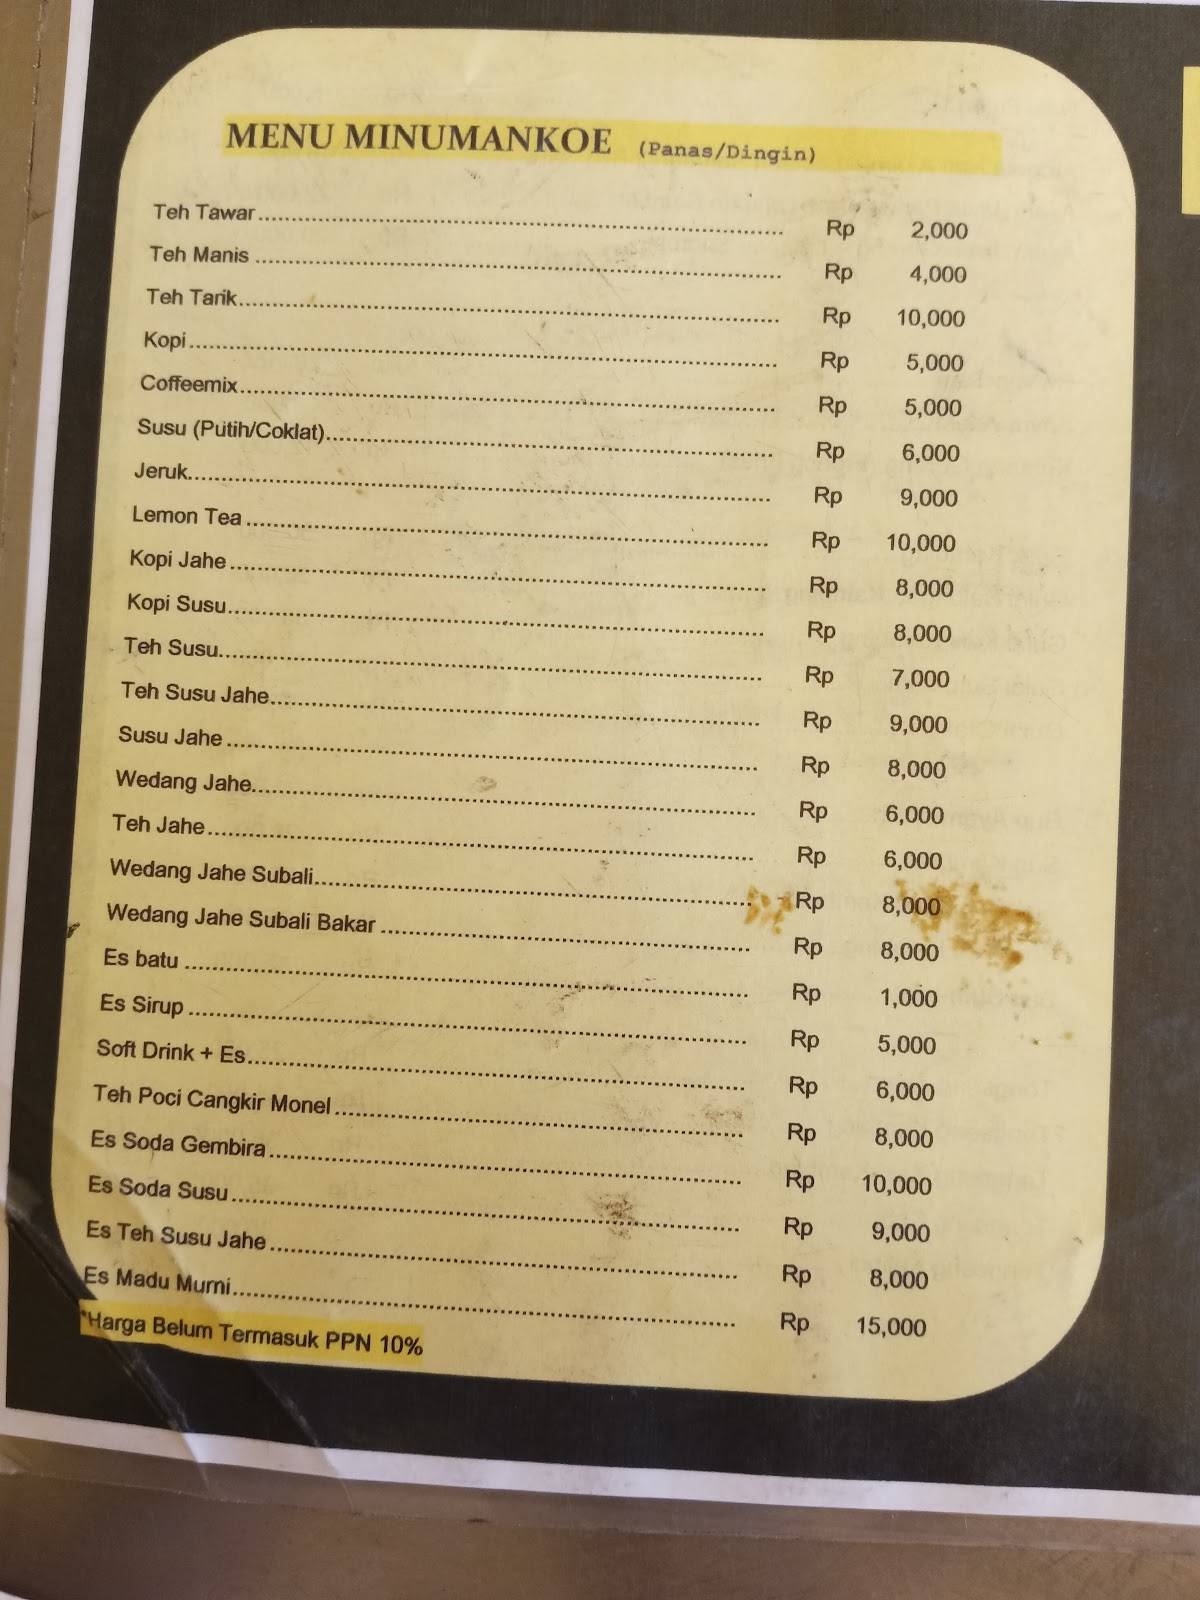 MENU MINUMANKOE (Panas/Dingin)
Teh Tawar Rp 2,000
Teh Manis Rp 4,000
Teh Tarik Rp 10,000
Kopi Rp 5,000
Coffeemix Rp 5,000
Susu (Putih/Coklat) Rp 6,000
Jeruk Rp 9,000
Lemon Tea Rp 10,000
Kopi Jahe Rp 8,000
Kopi Susu Rp 8,000
Teh Susu Rp 7,000
Teh Susu Jahe Rp 9,000
Susu Jahe Rp 8,000
Wedang Jahe Rp 6,000
Teh Jahe Rp 6,000
Wedang Jahe Subali Rp 8,000
Wedang Jahe Subali Bakar Rp 8,000
Es batu Rp 1,000
Es Sirup Rp 5,000
Soft Drink + Es Rp 6,000
Teh Poci Cangkir Monel Rp 8,000
Es Soda Gembira Rp 10,000
Es Soda Susu Rp 9,000
Es Teh Susu Jahe Rp 8,000
Es Madu Murni Rp 15,000
*Harga Belum Termasuk PPN 10%